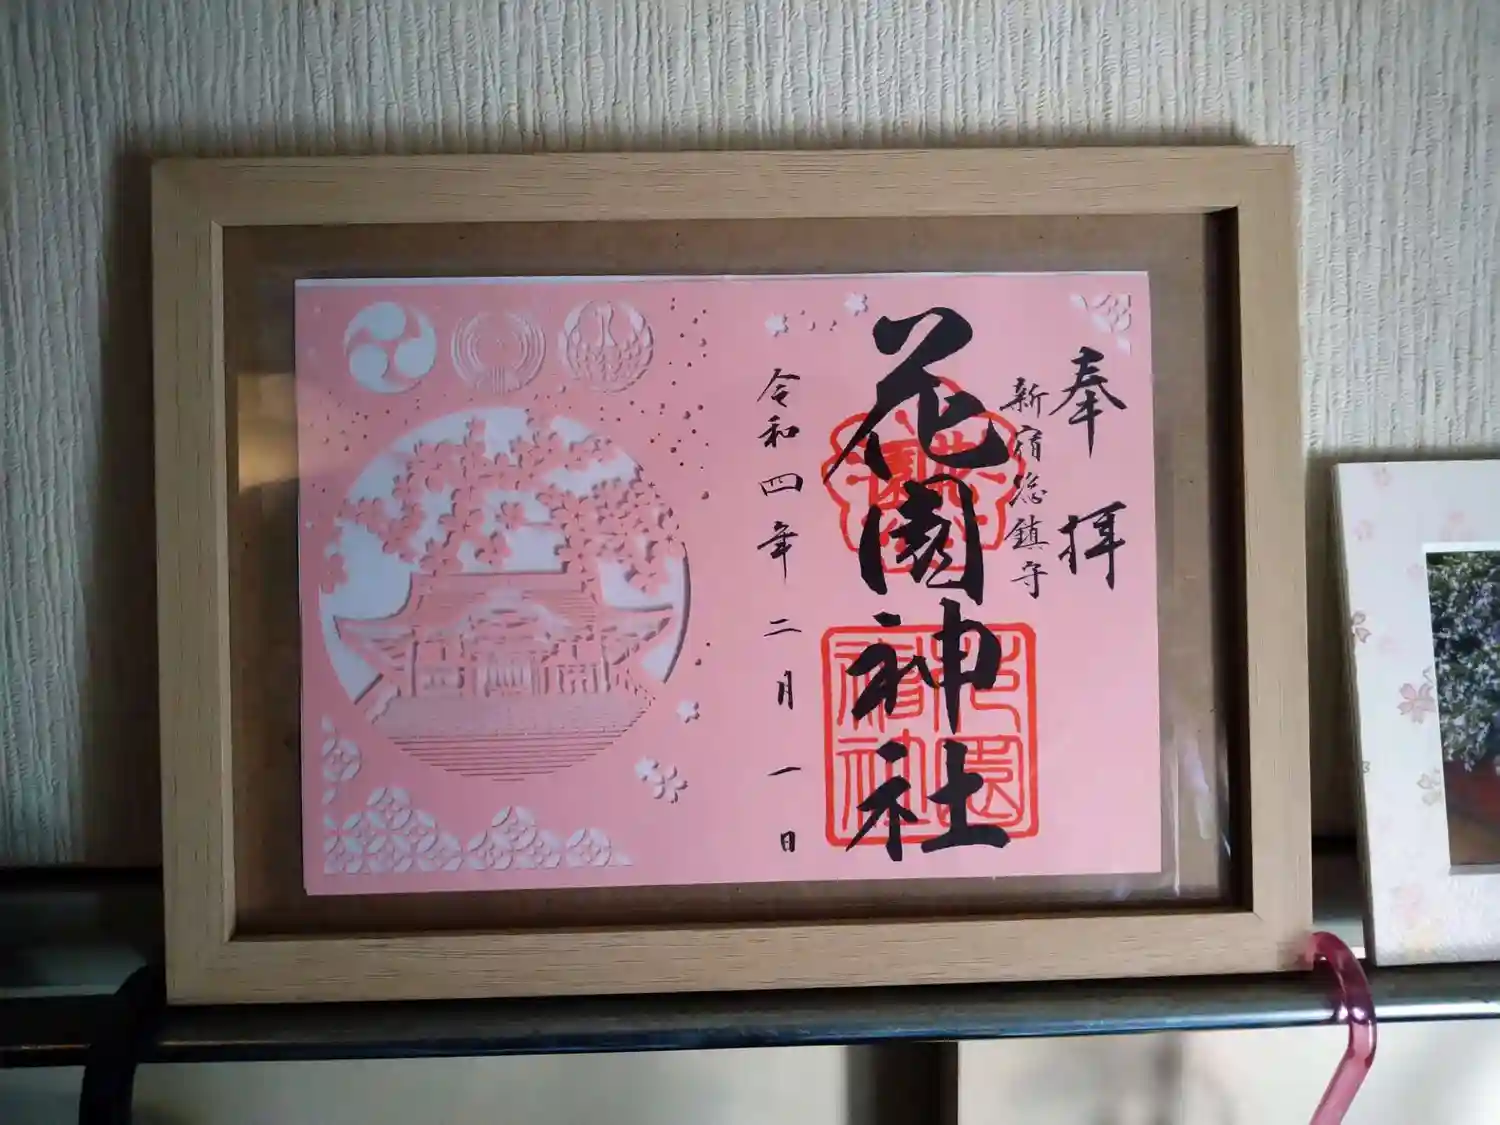 奉拝
新宿総鎮守
花園神社
令和四年二月一日
花園神社